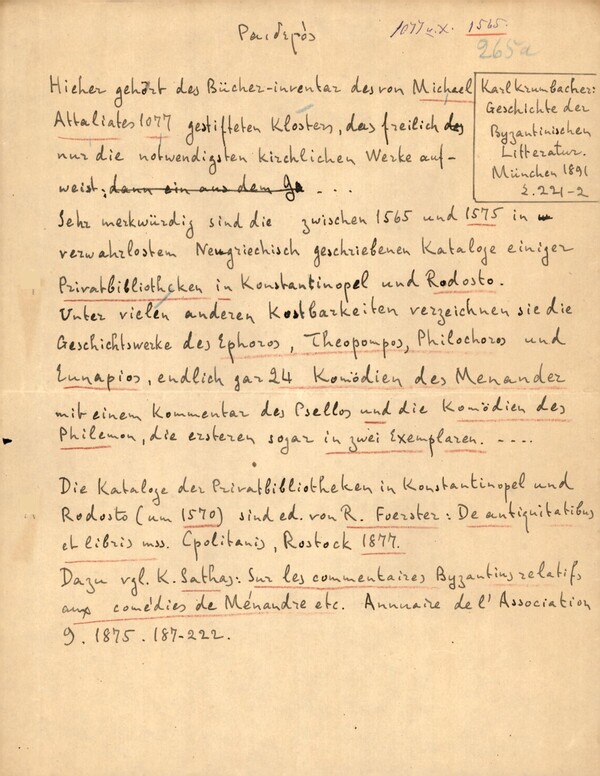 Ραιδερὸς
1077 u.X. 1565.
265a
Karl Krumbacher:
Geschichte der
Byzantinischen
Litteratur.
München 1891
S. 221-2
Hieher gehört des Bücher-inventar des von Michael
Attaliates 1077 gestifteten Klosters, das freilich des
nur die notwendigsten kirchlichen Werke auf-
weist; dann ein aus dem Ge . . .
Sehr merkwürdig sind die zwischen 1565 und 1575 in
verwahrlostem Neugriechisch geschriebenen Kataloge einiger
Privatbibliotheken in Konstantinopel und Rodosto.
Unter vielen anderen Kostbarkeiten verzeichnen sie die
Geschichtswerke des Ephoros, Theopompos, Philochoros und
Eunapios, endlich gar 24 Komödien des Menander
mit einem Kommentar des Psellos und die Komödien des
Philemon, die ersteren sogar in zwei Exemplaren. - . . .
Die Kataloge der Privatbibliotheken in Konstantinopel und
Rodosto (um 1570) sind ed. von R. Foerster: De antiquitatibus
et libris mss. Cpolitanis, Rostock 1877.
Dazu vgl. K. Sathas: Sur les commentaires Byzantins relatifs
aux comédies de Ménandre etc. Annuaire de l'Association
9. 1875. 187-222.